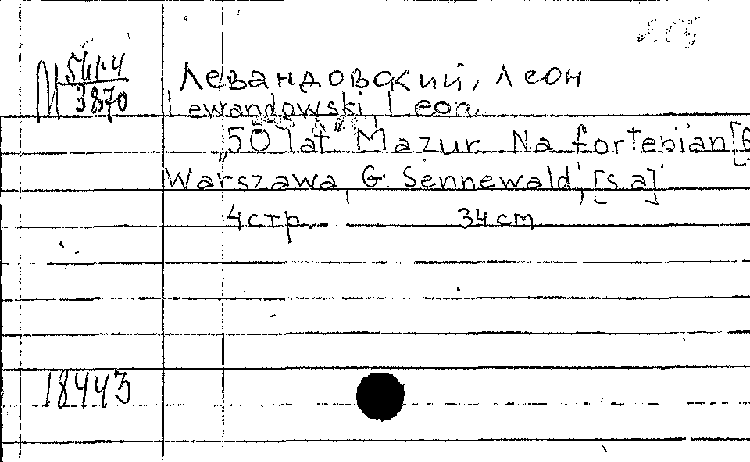 Левандовский, Леон
М 5414/3870
Lewandowski, Leon.
"50 lat" Mazur. Na fortepian [
Warszawa, G. Sennewald, [s.a]
4 стр. 34 cm
18443